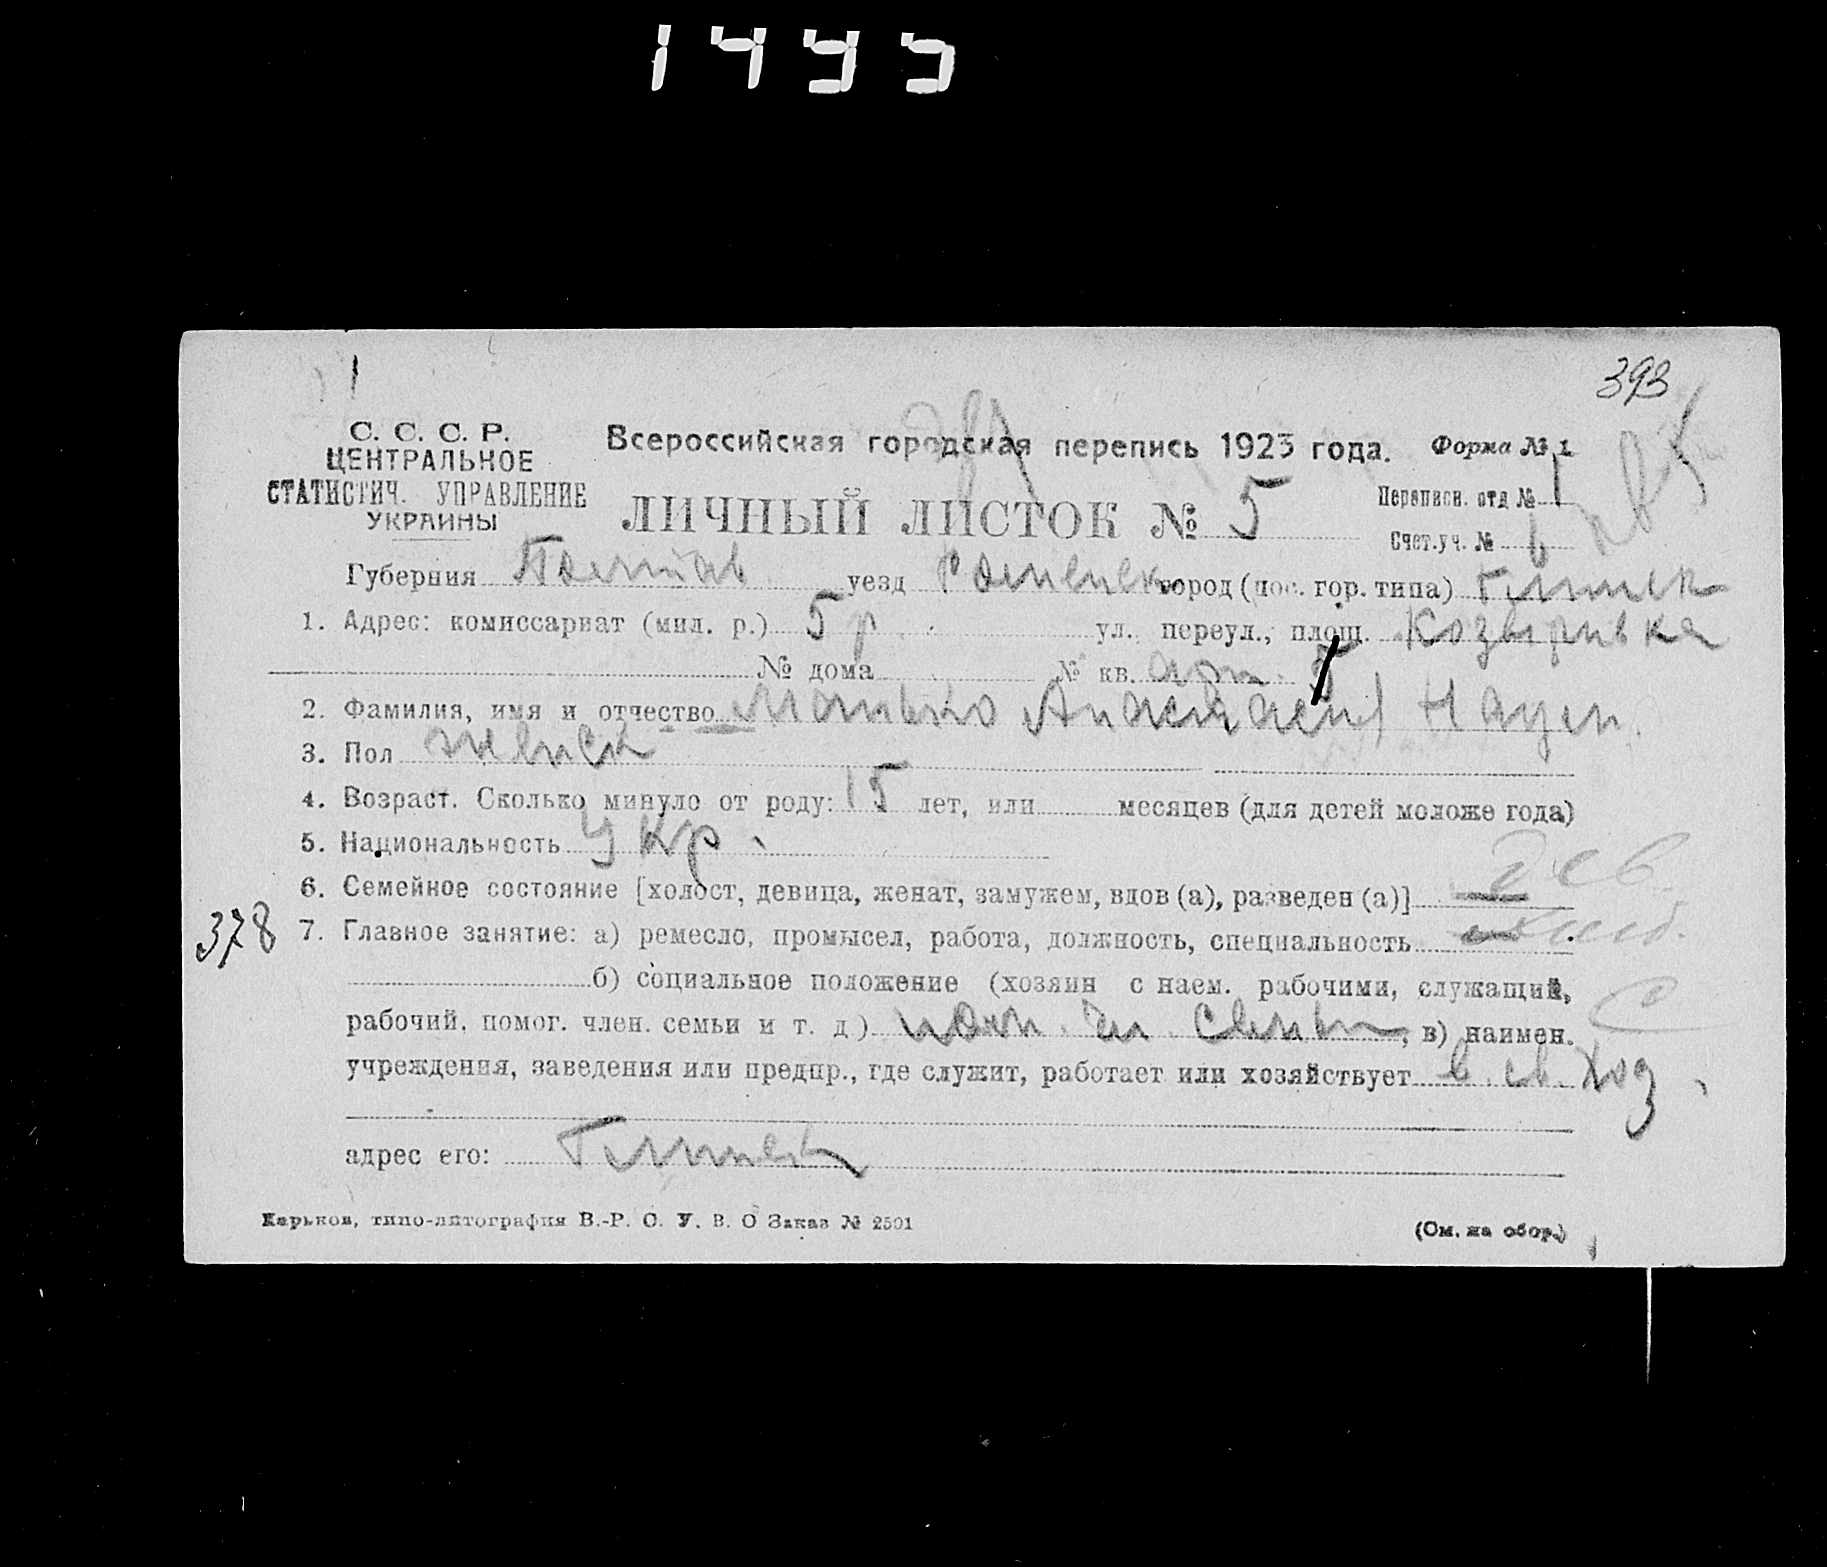 393
С. С. С. Р.
ЦЕНТРАЛЬНОЕ
СТАТИСТИЧ. УПРАВЛЕНИЕ
УКРАИНЫ
Всероссийская городская перепись 1923 года.
Форма № 1
ЛИЧНЫЙ ЛИСТОК № 5
Переписн. отд № 1
Счет.уч. №
Губерния Полтав уезд Роменск город (пос. гор. типа)
1. Адрес: комиссариат (мил. р.) 5 р ул. переул., площ. Козыривка
№ дома № кв.
2. Фамилия, имя и отчество Анастасия Наум.
3. Пол женск
4. Возраст. Сколько минуло от роду: 15 лет, или месяцев (для детей моложе года)
5. Национальность Укр.
6. Семейное состояние [холост, девица, женат, замужем, вдов (а), разведен (а)] дев.
378
7. Главное занятие: а) ремесло, промысел, работа, должность, специальность
б) социальное положение (хозяин с наем. рабочими, служащий,
рабочий, помог. член. семьи и т. д) пом. чл. семьи, в) наимен.
учреждения, заведения или предпр., где служит, работает или хозяйствует в св. хоз.
адрес его:
Харьков, типо-литография В.-Р. С. У. В. О Заказ № 2501
(См. на обор.)